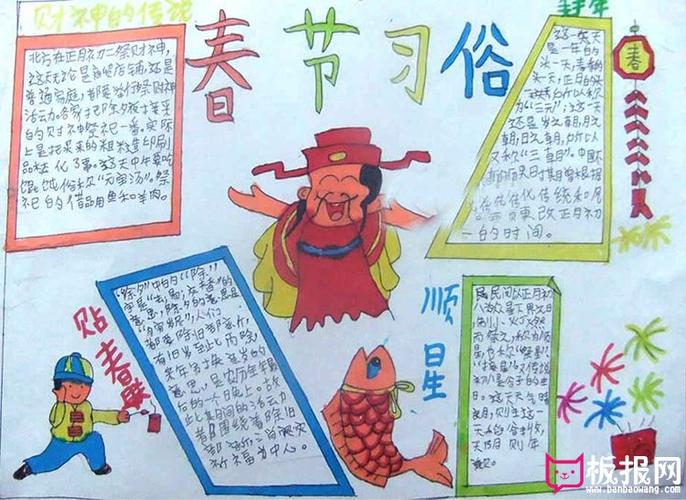 财神的传说
春节习俗
年
春
北方在正月初二祭财神,
这天无论是商贸店铺,还是
普通家庭,都要举行祭财神
活动。各家把除夕夜接来
的财神祭祀一番。实际
上是把买来的粗糙印刷
品焚化了事。这天中午要吃
馄饨俗称"元宝汤"。祭
祀的借品用鱼和羊肉。
这一天
是一年的
头一天,春季的
头一天,正月的头
一天,所以称
为"三元";这一天
还是岁之朝,月之
朝,日之朝,所以
又称"三朝"。中国
一的时间。
贴春联
"除夕"中的"除"
字是"去;易;交替"的
意思,除夕的意思是
"月穷岁尽",人们
都要除旧部新,
有旧岁至此而除,
来年另换新岁的
意思,是农历年最
后的一个晚上。故
此期间的活动
都围绕着除旧
部新,消灾
祈福为中心。
顺星
民间以正月初
八为众星下界之日,
制小灯燃
而祭之,称为顺
星,也称"祭星"
"接星"。又传说
初八是谷子的生
日。这天天气晴
朗,则主这一
年的稻谷丰收,
天阴则年
歉。
板报网
www.banbaowang.com